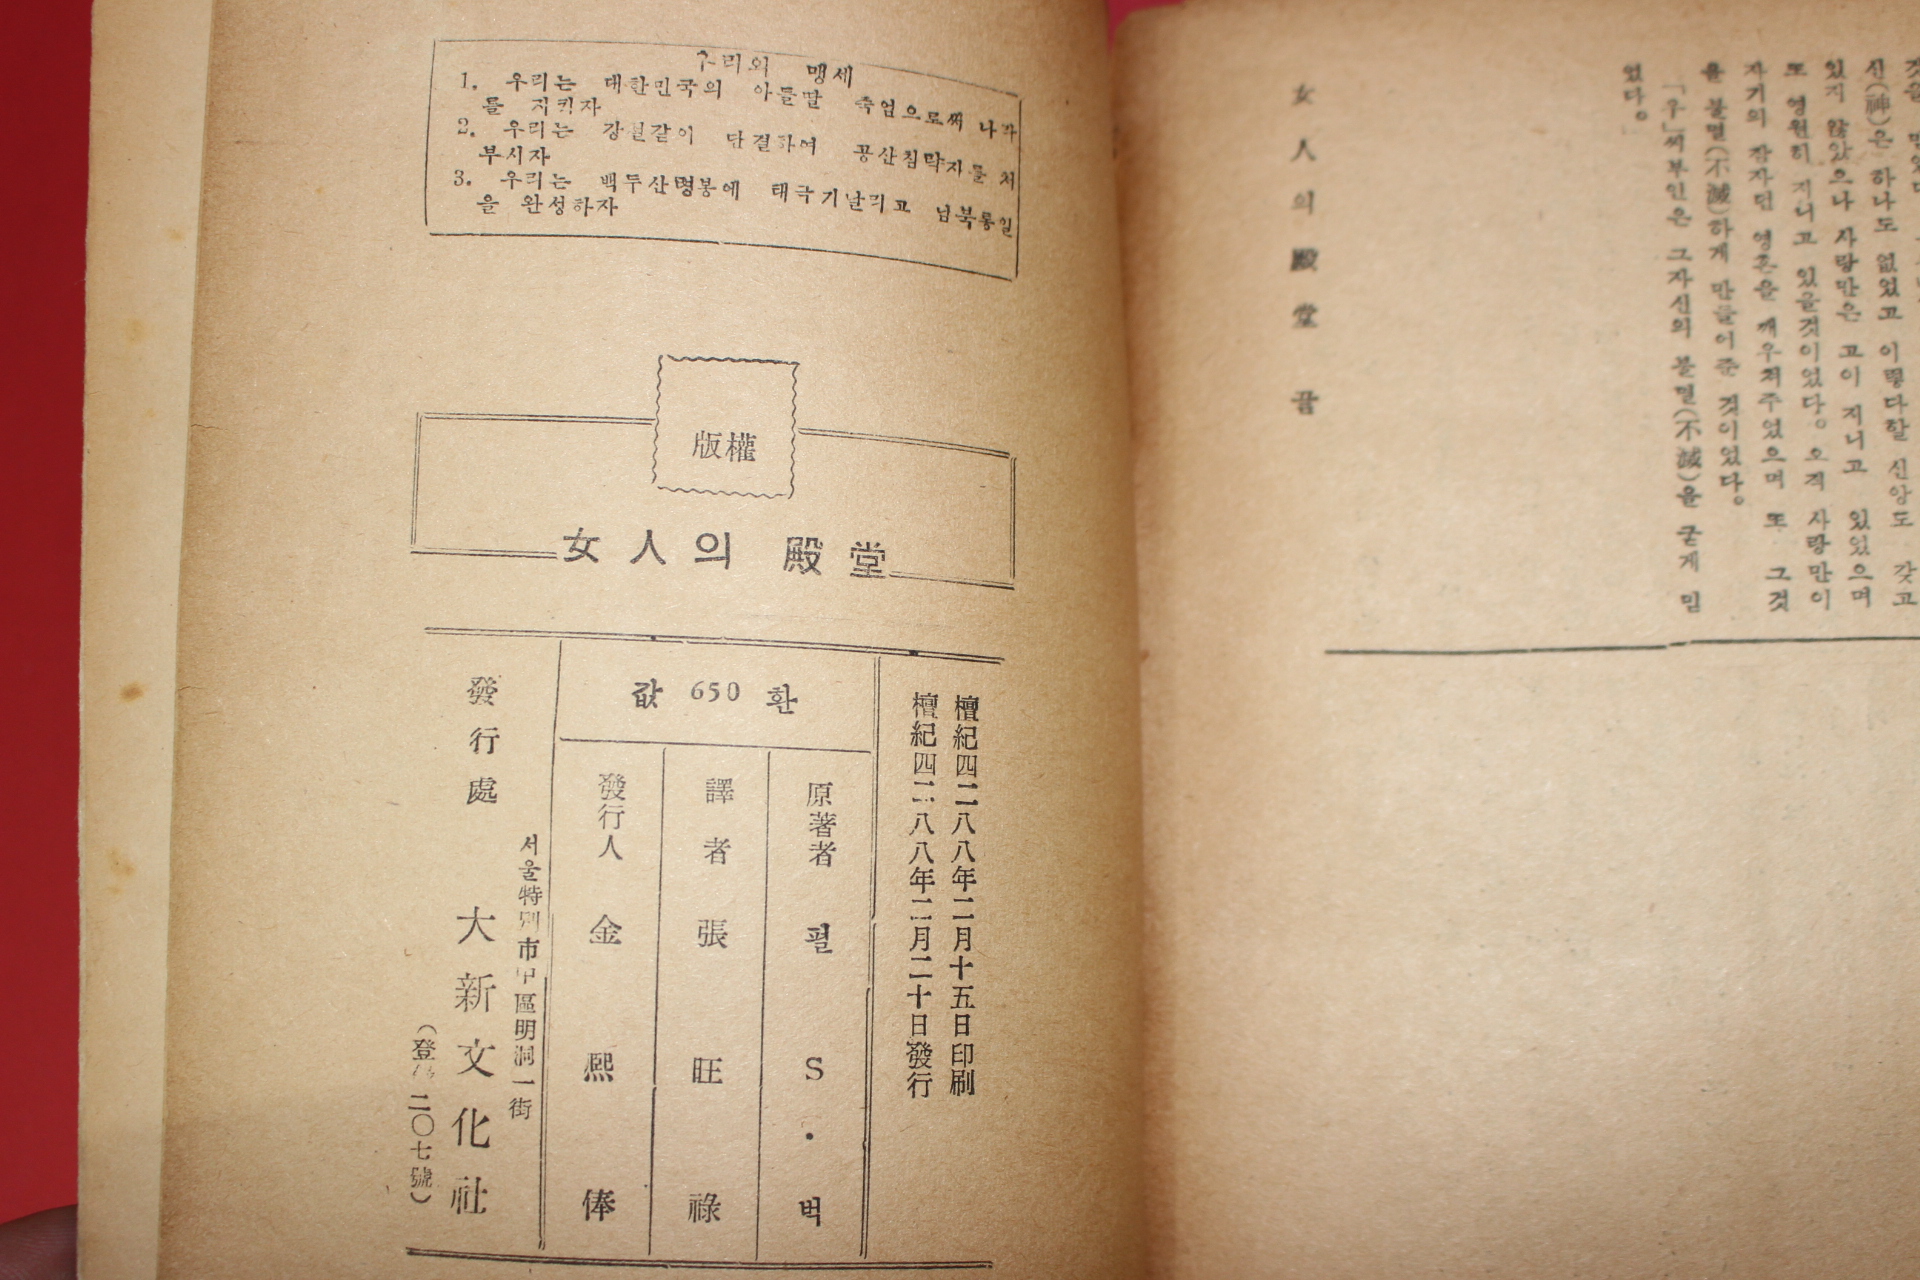 우리의 맹세
1. 우리는 대한민국의 아들딸 죽엄으로써 나라
를 지키자
2. 우리는 강철같이 단결하여 공산침략자를 처
부시자
3. 우리는 백두산령봉에 태극기날리고 남북통일
을 완성하자
版權
女人의 殿堂
檀紀四二八八年二月十五日印刷
檀紀四二八八年二月二十日發行
값 650 환
原著者 펄 S·벅
譯者 張旺祿
發行人 金熙俸
서울特別市中區明洞一街
發行處 大新文化社
(登 二〇七號)
신(神)은 하나도 없었고 이렇다할 신앙도 갖고
있지 않았으나 사랑만은 고이 지니고 있었으며
또 영원히 지니고 있을것이었다。오직 사랑만이
자기의 잠자던 영혼을 깨우쳐주었으며 또 그것
을 불멸(不滅)하게 만들어준 것이었다。
「우」씨부인은 그자신의 불멸(不滅)을 굳게 믿
었다。
女人의 殿堂 끝